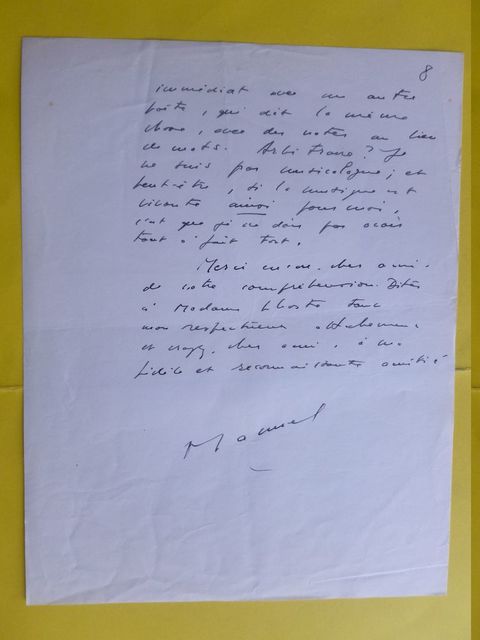 8
immédiat avec un autre
poète, qui dit la même
chose, avec des notes au lieu
de mots. Arbitraire? Je
ne suis pas musicologue; et
peut-être, si la musique est
vivante ainsi pour moi,
c'est que je ne dois pas avoir
tout à fait tort.
Merci encore, cher ami,
de votre compréhension. Dites
à Madame tout
mon respectueux attachement
et croyez, cher ami, à ma
fidèle et reconnaissante amitié